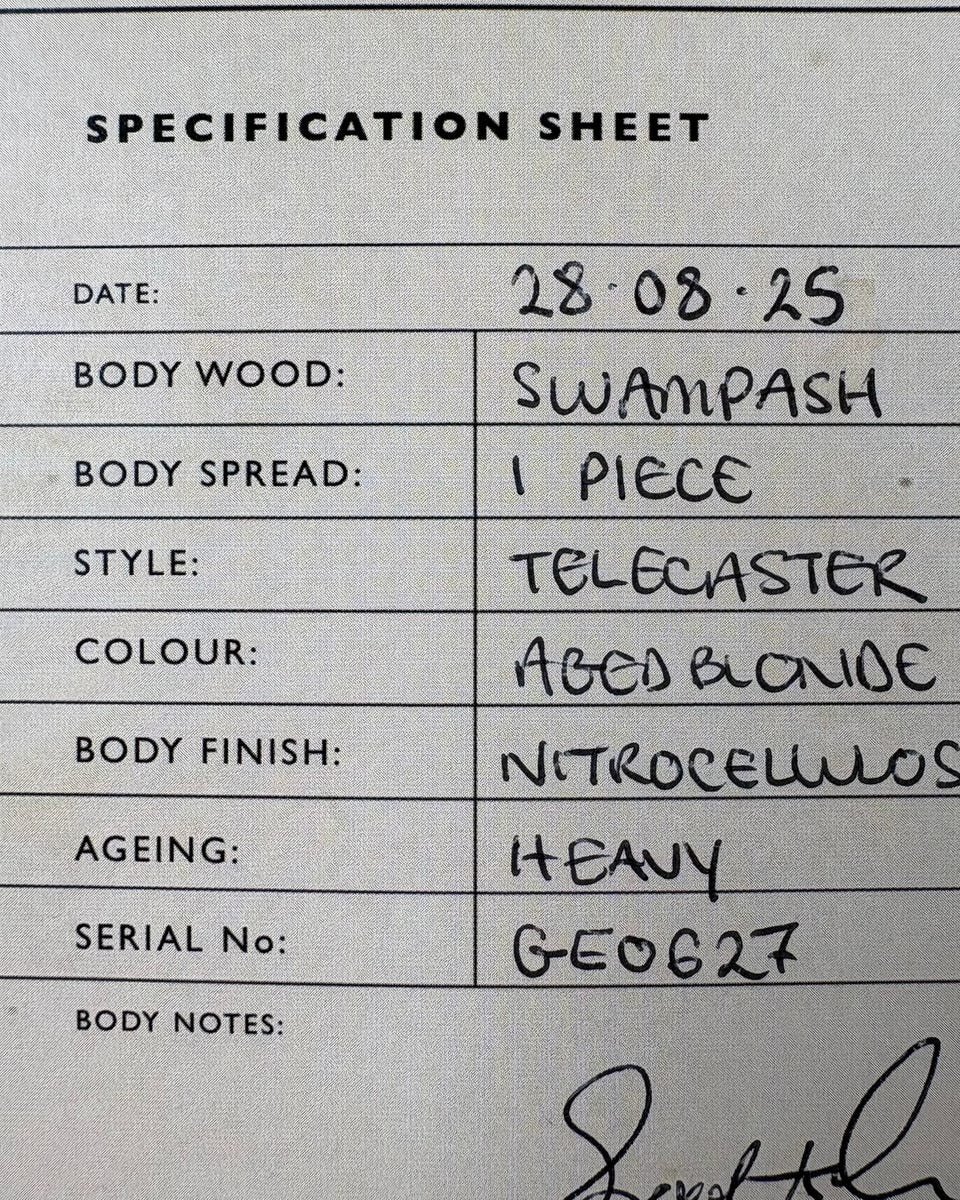 SPECIFICATION SHEET
DATE: 28·08·25
BODY WOOD: SWAMPASH
BODY SPREAD: 1 PIECE
STYLE: TELECASTER
COLOUR: AGED BLONDE
BODY FINISH: NITROCELLULOS
AGEING: HEAVY
SERIAL No: GE0627
BODY NOTES: